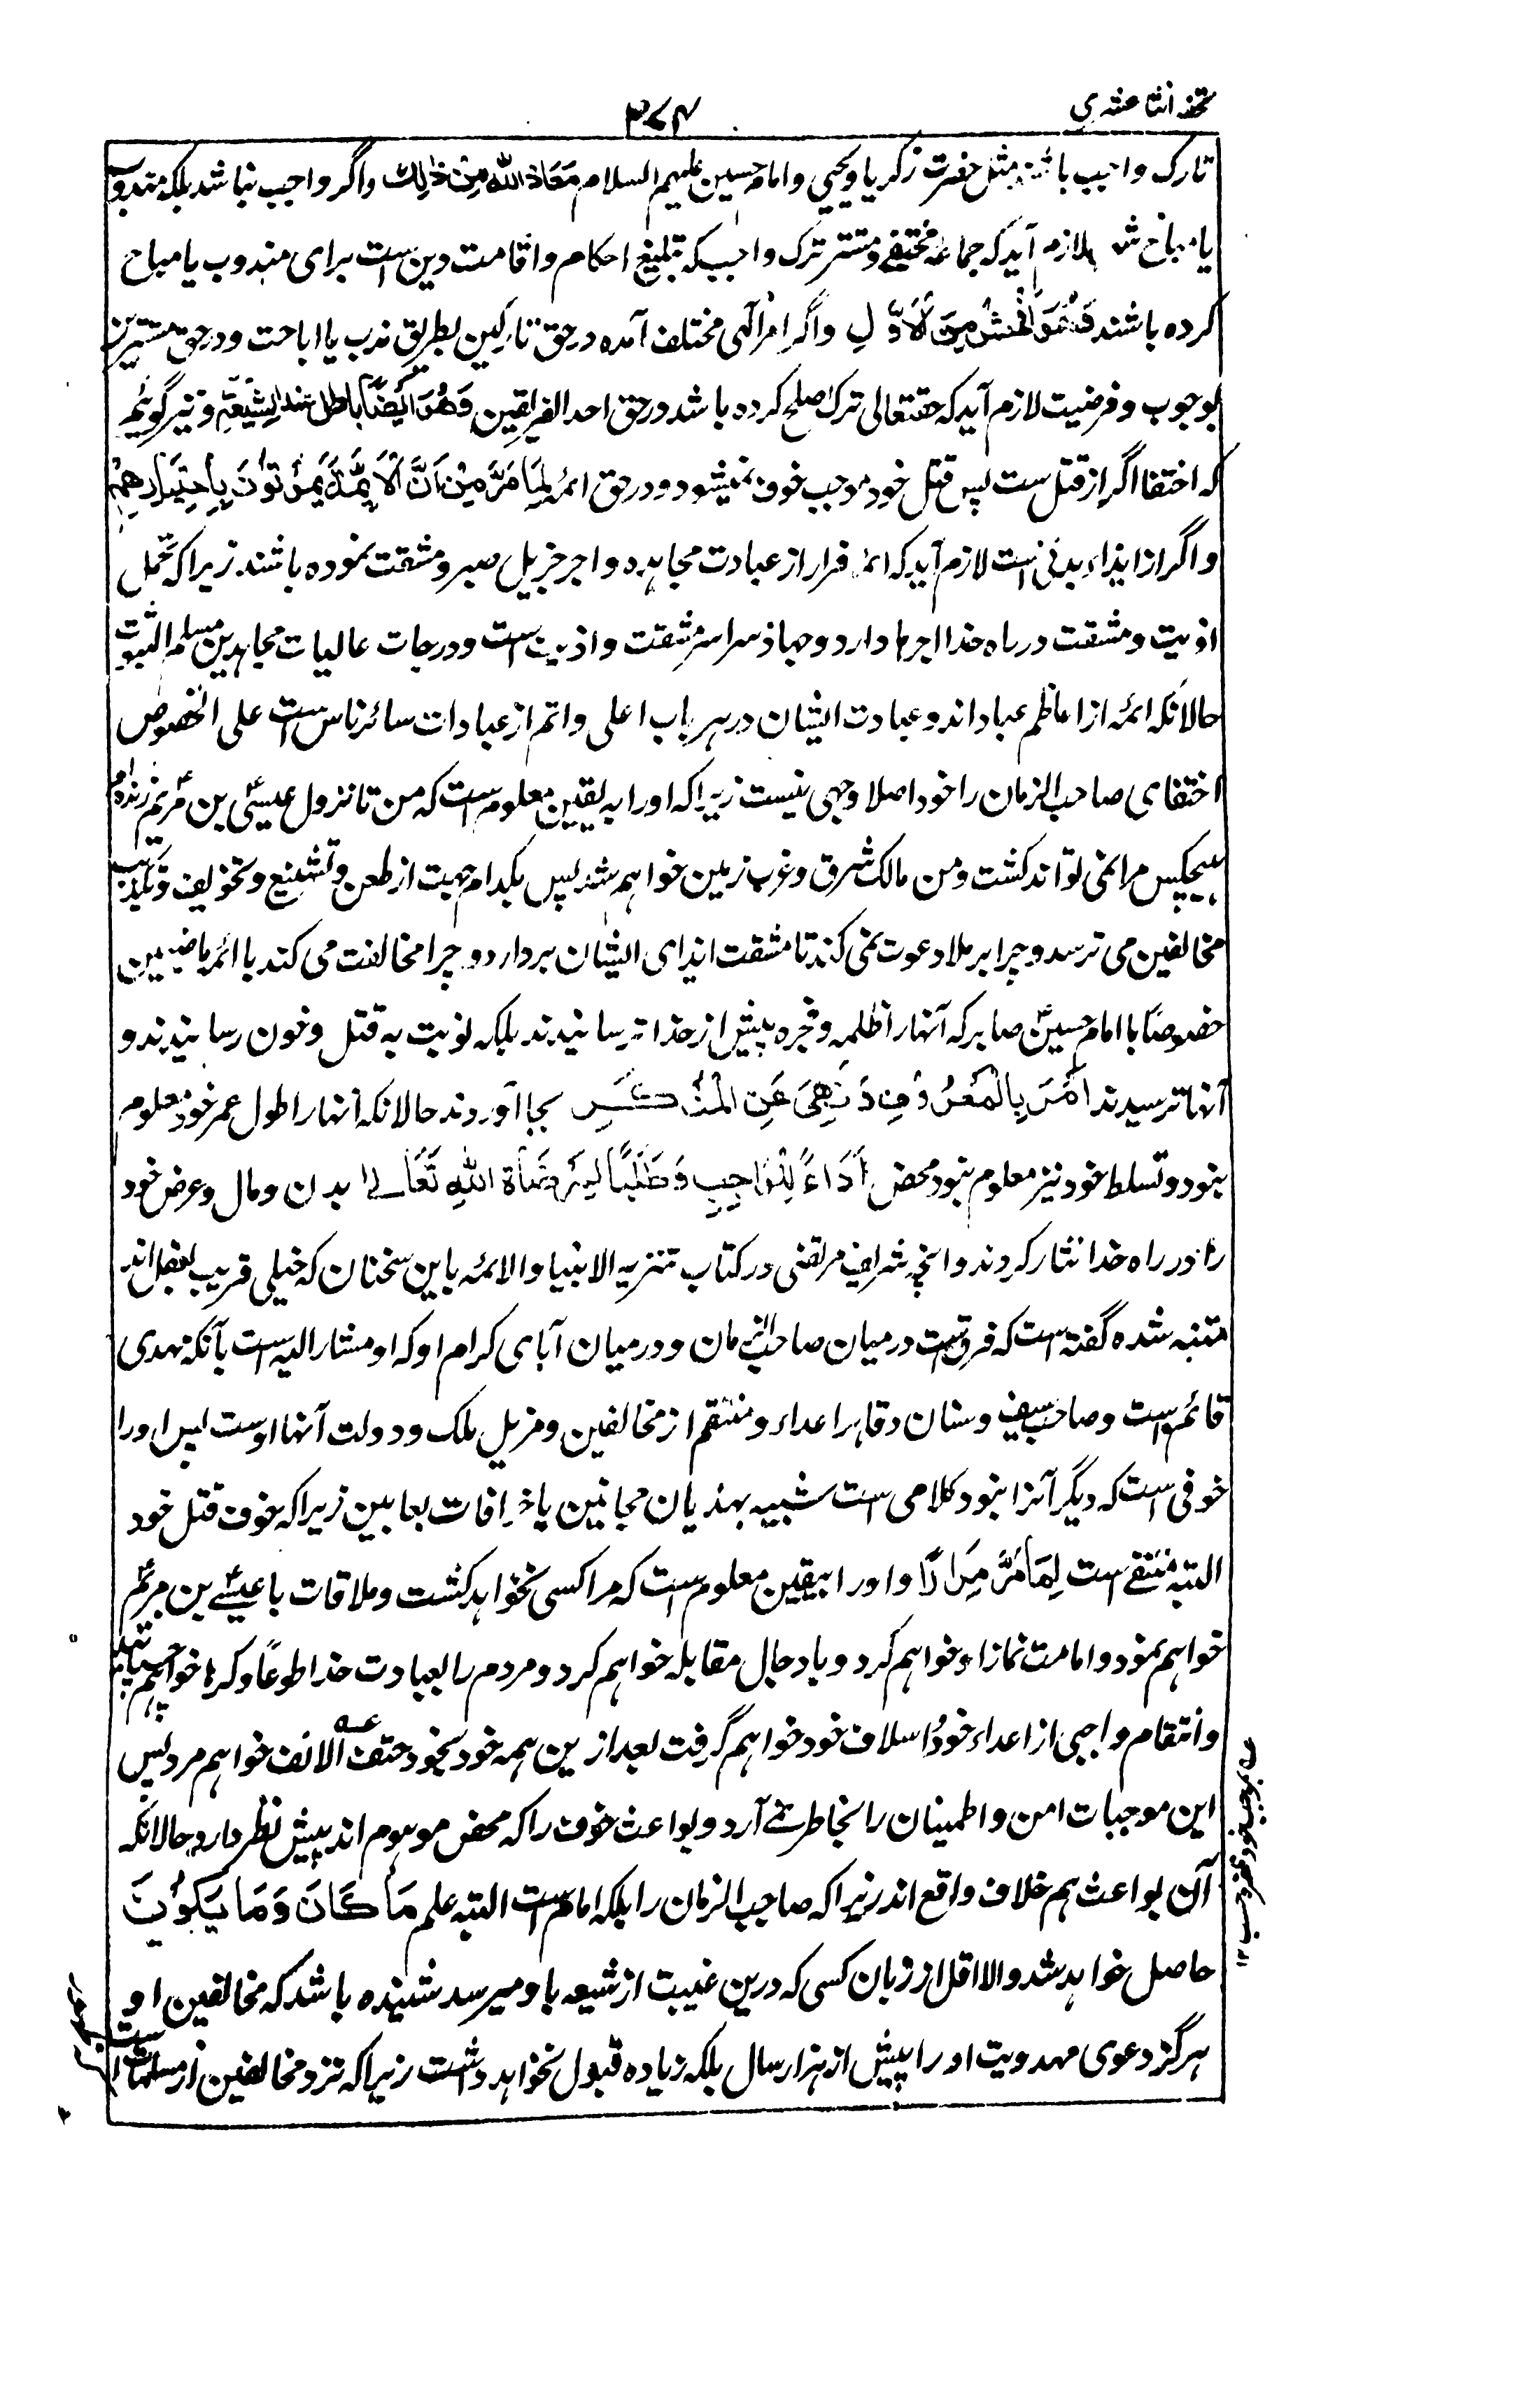 تحفه اثنا عشری
۳۷۴
تارک واجب باشند مثل حضرت زکریا و یحیی و امام حسین علیهم السلام مَعَاذَ اللّٰهِ مِنْ ذٰلِكَ و اگر واجب نباشد بلکه مندوب
یا مباح شد لازم آید که جماعهٔ مختفی و مستتر ترک واجب که تبلیغ احکام و اقامت دین است برای مندوب یا مباح
کرده باشند فَهُوَ اَفْحَشُ مِنَ الْاَوَّلِ و اگر امر الٰهی مختلف آمده در حق تارکین بطریق ندب یا اباحت و در حق مستترین
بوجوب و فرضیت لازم آید که حقتعالی ترک اصلح کرده باشد در حق احد الفریقین وَهُوَ اَیْضًا بَاطِلٌ عِنْدَ الشِّیْعَةِ و نیز گوئیم
که اختفا اگر از قتل ست پس قتل خود موجب خوف نمیشود در حق ائمه لِمَا مَرَّ مِنْ اَنَّ الْاَئِمَّةَ یَمُوْتُوْنَ بِاِخْتِیَارِهِمْ
و اگر از ایذاء بدنی است لازم آید که ائمه فرار از عبادت مجاهده و اجر جزیل صبر و مشقت نموده باشند زیرا که تحمل
اذیت و مشقت در راه خدا اجرها دارد و جهاد سراسر مشقت و اذیت است و درجات عالیات مجاهدین مسلم الثبوت
حالانکه ائمه از اعاظم عباد اند و عبادت ایشان در هر باب اعلی و اتم از عبادات سائر ناس است علی الخصوص
اختفای صاحب الزمان را خود اصلا وجهی نیست زیرا که او را به یقین معلوم ست که من تا نزول عیسیؑ بن مریم زنده ام
هیچکس مرا نمی تواند کشت و من مالک شرق و غرب زمین خواهم شد پس بکدام جهت از طعن و تشنیع و تخویف و تکذیب
مخالفین می ترسد و چرا برملا دعوت نمی کند تا مشقت ایذای ایشان بردارد و چرا مخالفت می کند با ائمه ماضیین
خصوصًا با امام حسینؑ صابر که آنها را ظلمه و فجره بیش از حد ترسانیدند بلکه نوبت به قتل و خون رسانیدند و
آنها نترسیدند اَمْرَ بِالْمَعْرُوْفِ وَنَهِیَ عَنِ الْمُنْکَرِ بجا آوردند حالانکه آنها را طول عمر خود معلوم
نبود و تسلط خود نیز معلوم نبود محض اَدَاءً لِلْوَاجِبِ وَطَلَبًا لِمَرْضَاةِ اللّٰهِ تَعَالٰی بدن و مال و عرض خود
را در راه خدا نثار کردند و آنچه شریف مرتضی در کتاب تنزیه الانبیا والائمه باین سخنان که خیلی قریب بعقل اند
متنبه شده گفته ست که فرق ست درمیان صاحب الزمان و درمیان آبای کرام او که او مشار الیه است بآنکه مهدی
قائم ست و صاحب سیف و سنان و قاهر اعداء و منتقم از مخالفین و مزیل ملک و دولت آنها اوست پس او را
خوفی است که دیگر آنرا نبود کلامی است شبیه بهذیان مجانین یا خرافات بعابین زیرا که خوف قتل خود
البته منتفی است لِمَا مَرَّ مِرَارًا و او را بیقین معلوم ست که مرا کسی نخواهد کشت و ملاقات با عیسیؑ بن مریم
خواهم نمود و امامت نماز او خواهم کرد و با دجال مقابله خواهم کرد و مردم را بعبادت خدا طوعًا و کرها خواهم
و انتقام واجبی از اعداء خود و اسلاف خود خواهم گرفت بعد ازین همه خود بخود حتف الانف خواهم مرد پس
این موجبات امن و اطمینان را بخاطر نمی آرد و بواعث خوف را که محض موهوم اند پیش نظر دارد حالانکه
آن بواعث هم خلاف واقع اند زیرا که صاحب الزمان را بلکه امام ست البته علم مَا کَانَ وَمَا یَکُوْنُ
حاصل خواهد شد و الا اقل از زبان کسی که درین غیبت از شیعه باو میرسد شنیده باشد که مخالفین او
هرگز دعوی مهدویت او را پیش از هزار سال بلکه زیاده قبول نخواهد داشت زیرا که نزد مخالفین از مسلمات